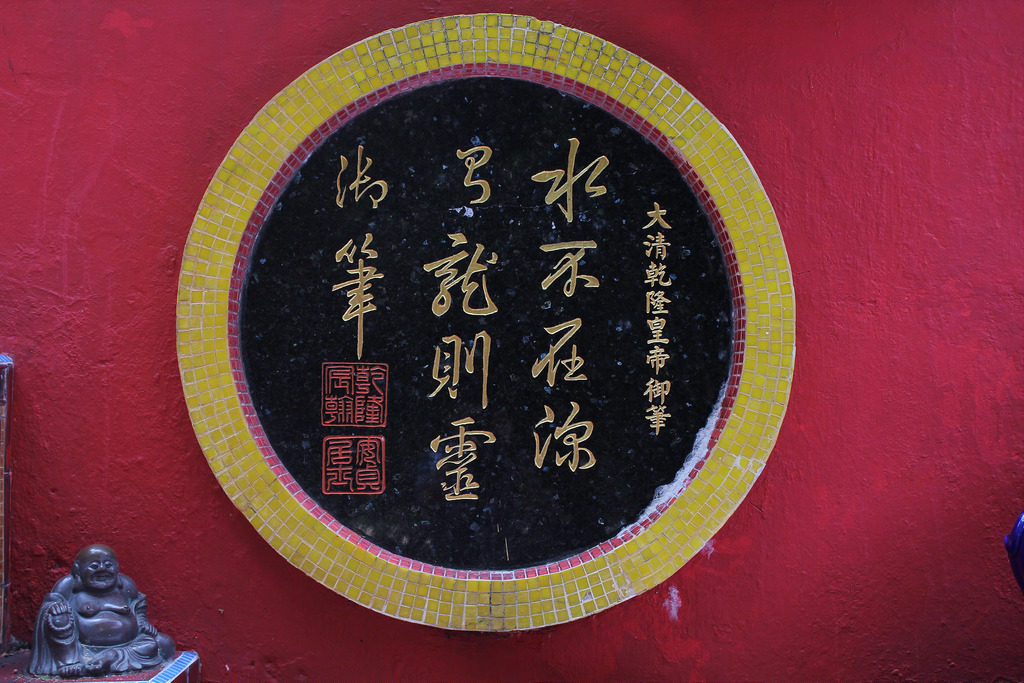 大清乾隆皇帝御筆
水不在深
有龍則靈
御筆
乾隆宸翰